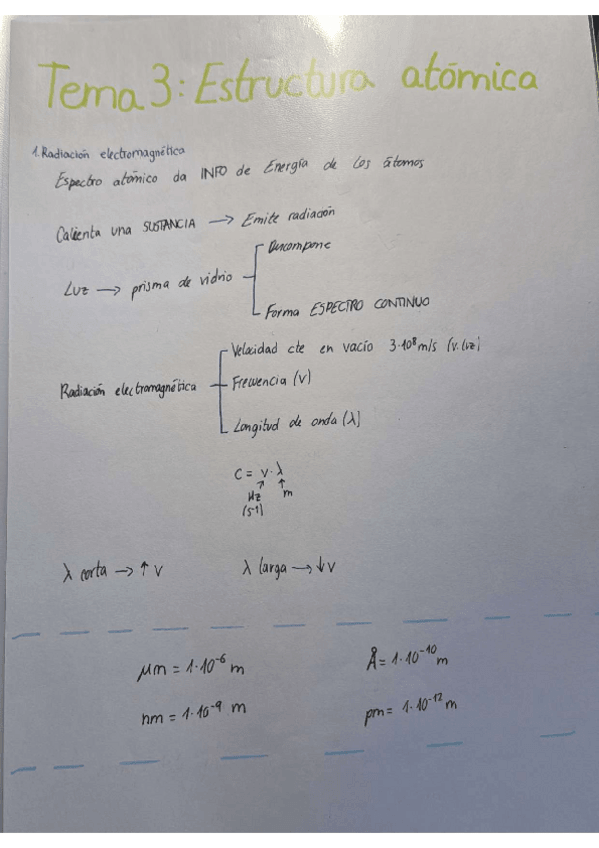 Tema 3: Estructura atómica
1. Radiación electromagnética
Espectro atómico da INFO de Energía de los átomos
Calienta una SUSTANCIA → Emite radiación
Luz → prisma de vidrio
Descompone
Forma ESPECTRO CONTINUO
Radiación electromagnética
Velocidad cte en vacío 3·10⁸ m/s (v.luz)
Frecuencia (ν)
Longitud de onda (λ)
C = ν · λ
Hz m
(s-1)
λ corta → ↑ ν λ larga → ↓ ν
μm = 1·10⁻⁶ m Å = 1·10⁻¹⁰ m
nm = 1·10⁻⁹ m pm = 1·10⁻¹² m